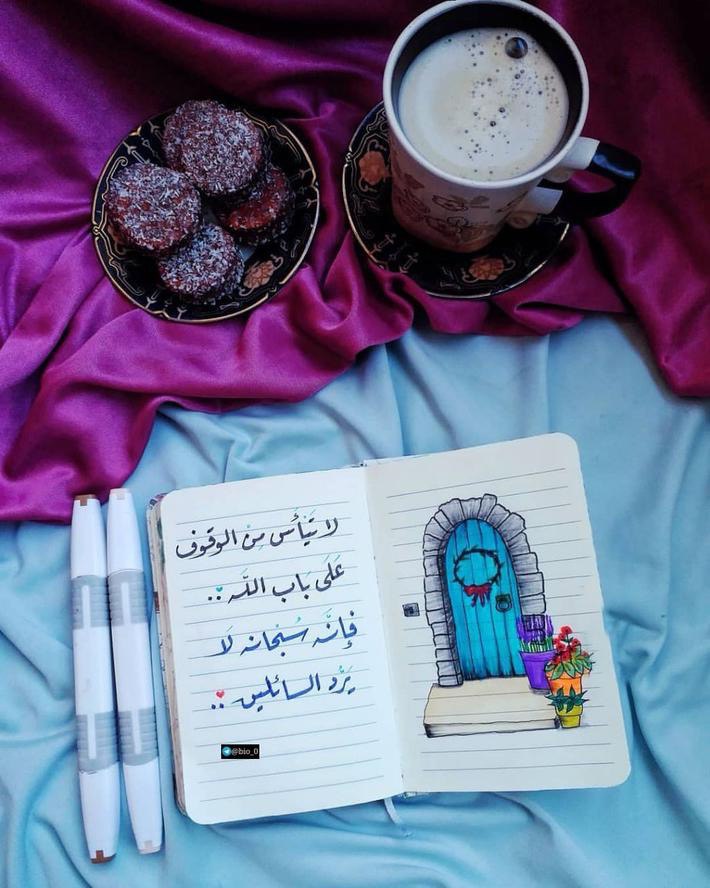 لا تَيْأَس مِنْ الوقوف
عَلَى بَاب اللّه ..
فَإنَّه سُبْحَانه لَا
يَرُد السائلين ..
@bio_0